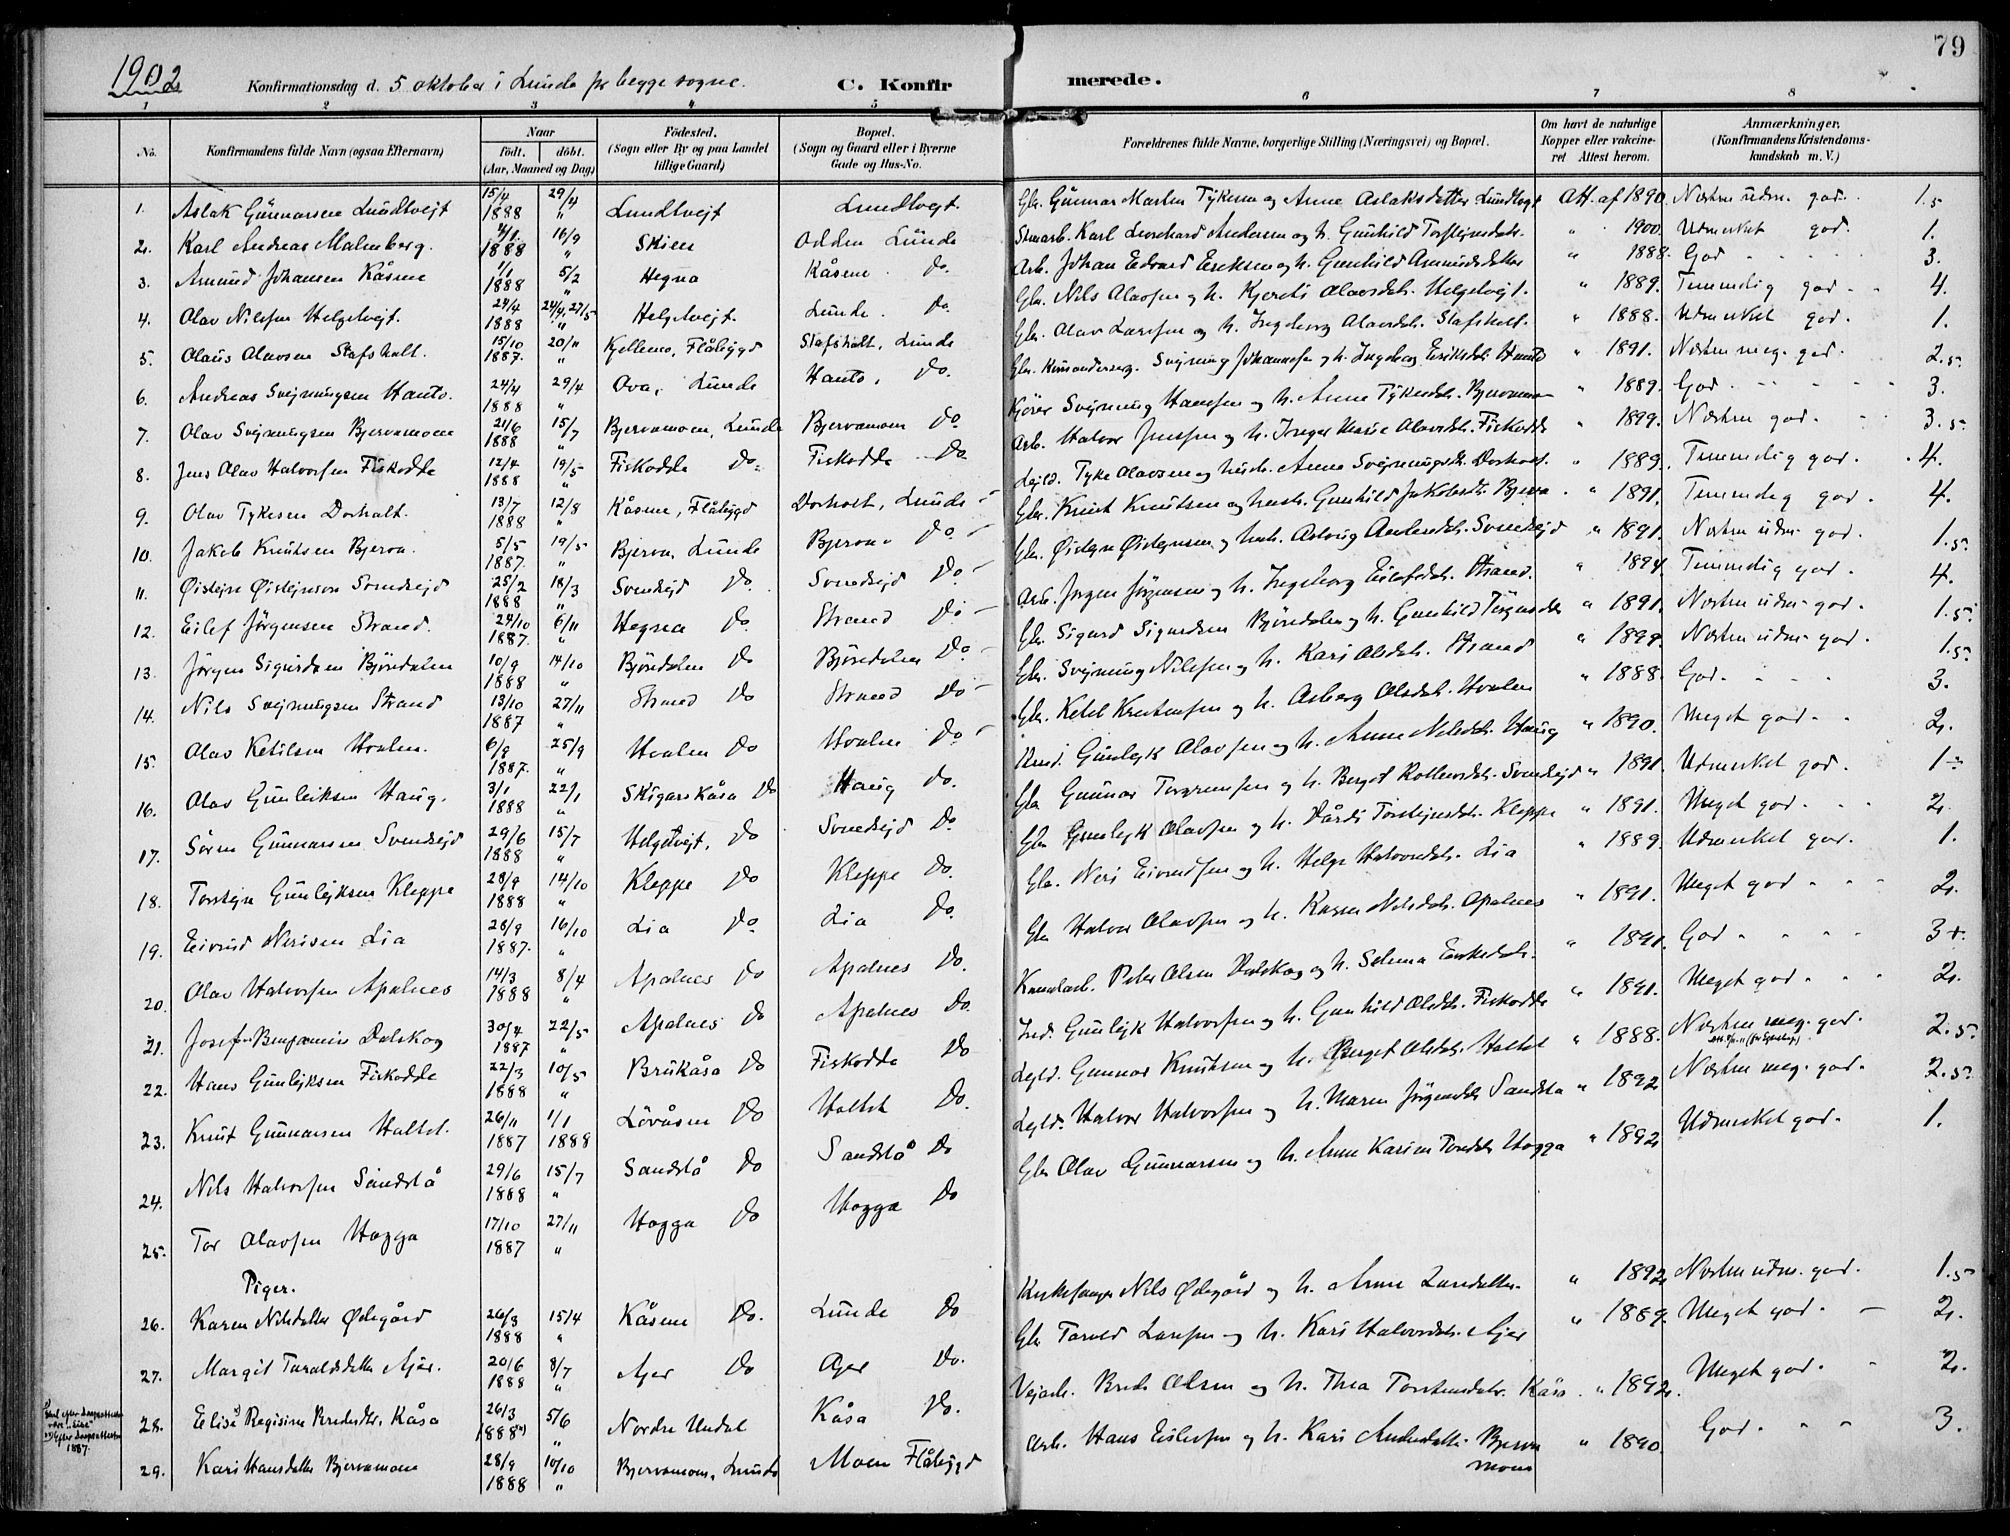 79
1902
Konfirmationsdag d. 5 oktober i Lunde for begge sogne. C. Konfir merede.
1 2 3 4 5 6 7 8
No. Konfirmandens fulde Navn (ogsaa Efternavn) Naar födt. döbt. (Aar, Maaned og Dag) Födested. (Sogn eller By og paa Landet tillige Gaard) Bopæl. (Sogn og Gaard eller i Byerne Gade og Hus-No. Forældrenes fulde Navne, borgerlige Stilling (Næringsvei) og Bopæl. Om havt de naturlige Kopper eller vakcineret Attest herom. Anmærkninger, (Konfirmandens Kristendomskundskab m. V.)
1. Aslak Gunnarsen Lundtvejt 15/4 1888 29/4 " Lundtvejt Lundtvejt. Gbr. Gunnar Martin Tykesen og Anne Aslaksdatter Lundtvejt Att. af 1890. Næsten udm. god. 1.5
2. Karl Andreas Malmberg. 1888 16/9 " Skien Odden Lunde Karl Leonhard Andersen og h. Gunhild Torstejnsdtr. " 1900. Udmerket god. 1.
3. Amund Johansen Kåsene 1/1 1888 5/2 " Hegna Kåsene. Do. Arb. Johan Edvard Eriksen og h. Gunhild Amundsdatter " 1888. God 3.
4. Olav Nilssen Helgetvejt. 24/4 1888 24/4, 27/5 " Helgetvejt. Lunde. Do. Gbr. Nils Olavsen og h. Kjersti Olavsdtr. Helgetvejt. " 1889. Temmelig god. 4.
5. Olaus Olavsen Stafsholt. 15/10 1887. 20/11 " Kjellemo, Flåbygd Stafsholt, Lunde Gbr. Olav Larsen og h. Ingeborg Olavsdtr. Stafsholt. " 1888. Udmerket god. 1.
6. Andreas Svejnungsen Hanto. 24/4 1888 29/4 " Ova, Lunde Hanto, Do. Gbr. Svejnung Johannesen og h. Ingeborg Eriksdtr. Hanto " 1891. Næsten meg. god. 2.5
7. Olav Svejnungsen Bjervamoen 21/6 1888 15/7 " Bjervamoen, Lunde Bjervamoen Do. Kjörer Svejnung Hansen og h. Anne Tykesdtr. Bjervamoen " 1889. God. 3.
8. Jens Olav Halvorsen Fiskodde 12/4 1888 19/5 " Fiskodde Do. Fiskodde Do Arb. Halvor Jensen og h. Inger Marie Olavsdtr. Fiskodde " 1899. Næsten god. 3.5.
9. Olav Tykesen Dorholt. 13/7 1888 12/8 " Kåsene, Flåbygd Dorholt, Lunde Lejld. Tyke Olavsen og hust. Anne Svejnungsdtr. Dorholt. " 1889. Temmelig god. 4.
10. Jakob Knutsen Bjerva. 5/5 1887. 19/5 " Bjerva, Lunde Bjerva Do. Gbr. Knut Knutsen og hust. Gunhild Jakobsdtr. Bjerva " 1891. Temmelig god. 4.
11. Øistejn Øistejnsen Svendsejd 25/2 1888 18/3 " Svendsejd Do. Svendsejd Do. Gbr. Øistejn Øistejnsen og hust. Aslaug Andersdtr. Svendsejd " 1891. Næsten udm. god. 1.5.
12. Eilef Jörgensen Strand. 24/10 1887. 6/11 " Hegna Do. Strand Do Arb. Jörgen Jörgensen og h. Ingeborg Eilefsdtr. Strand. " 1894. Temmelig god. 4.
13. Jörgen Sigurdsen Björndalen 10/9 1888 14/10 " Björndalen Do Björndalen Do. Gbr. Sigurd Sigurdsen Björndalen og h. Gunhild Jörgensdtr " 1891. Næsten udm. god. 1.5.
14. Nils Svejnungsen Strand 13/10 1887 27/11 " Strand Do Strand Do Gbr. Svejnung Nilsen og h. Kari Olsdtr. Strand " 1899. Næsten udm. god. 1.5.
15. Olav Ketilsen Hvalen. 6/9 1887. 25/9 " Hvalen Do Hvalen Do. Gbr. Ketil Kristensen og h. Asberg Olsdtr. Hvalen " 1888. God. 3.
16. Olav Gunleiksen Haug. 3/1 1888 22/1 " Skigarskåsa Do Haug Do. Gunlejk Olavsen og h. Anne Nilsdtr. Haug " 1890. Meget god. 2.
17. Sören Gunnarsen Svendsejd 29/6 1888 15/7 " Helgetvejt, Do Svendsejd Do. Gbr Gunnar og h. Berget Svendsejd " 1891. Udmerket god. 1
18. Torstejn Gunlejksen Kleppe 28/9 1888 14/10 " Kleppe Do Kleppe Do. Gbr Gunlejk Olavsen og h. Torstejnsdtr. Kleppe " 1891. Meget god. 2.
19. Eivind Nerisen Lia 28/9 1887. 16/10 " Lia Do. Lia Do. Gbr. Neri Eivindsen og h. Helge Halvorsdtr. Lia " 1889. Udmerket god. 1.
20. Olav Halvorsen Apalnes 14/3 1888 8/4 " Apalnes Do Apalnes Do. Gbr Halvor Olavsen og h. Karen Nilsdtr. Apalnes " 1891. Meget god. 2.
21. Josef Benjamin Dalskog 30/4 1887 22/5 " Apalnes Do Apalnes Do. Kanalarb. Peter Olsen Dalskog og h. Selma " 1891. God 3+.
22. Hans Gunlejksen Fiskodde 22/3 1888 10/5 " Brukåsa Do Fiskodde Do Ind. Gunlejk Halvorsen og h. Gunhild Olsdtr. Fiskodde " 1891. Meget god. 2.
23. Knut Gunnarsen Haltet. 26/11 1887 1/1 1888 Lövåsen Do Haltet Do. Lejld. Gunnar Knutsen og h. Berget Olsdtr. Haltet " 1888. Næsten meg. god. 2.5.
24. Nils Halvorsen Sandstå 29/6 1888 15/7 " Sandstå Do Sandstå Do Lejld. Halvor Halvorsen og h. Maren Jörgensdtr Sandstå " 1892 Næsten meg. god. 2.5.
25. Tor Olavsen Hogga 17/10 1887 27/11 " Hogga Do Hogga Do Gbr Olav Gunnarsen og h. Anne Karine Torsdtr. Hogga " 1892 Udmerket god. 1.
Piger.
26. Karen Nilsdatter Ødegård 26/3 1888 15/4 " Kåsene Do. Lunde Do Kirkesanger Nils Ødegård og h. Anne Larsdatter. " 1892 Næsten udm. god. 1.5
27. Margit Taraldsdatter Ajer. 20/6 1888 8/7 " Ajer Do Ajer Do. Gbr Tarald Larsen og h. Kari Halvorsdtr. Ajer " 1889. Meget god. 2.
28. Elise Regisine Bredesdtr. Kåsa 26/3 1888 5/6 " Nordre Undal Kåsa Do. Vejarb. Brede Olsen og h. Thea Torstensdtr. Kåsa " 1892. Meget god. 2.
29. Kari Hansdatter Bjervamoen 28/9 1888 10/10 " Bjervamoen, Lunde Moen Flåbygd Arb. Hans Eilevsen og h. Kari Andersdatter Bjerva moen " 1890. God. 3.
efter Daabsattesten
Efter Daabsattesten
1887.